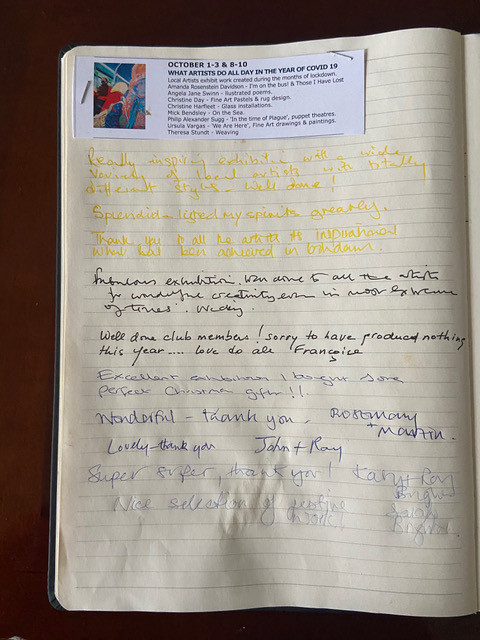 OCTOBER 1-3 & 8-10
WHAT ARTISTS DO ALL DAY IN THE YEAR OF COVID 19
Local Artists exhibit work created during the months of lockdown.
Amanda Rosenstein Davidson - I'm on the bus! & Those I Have Lost
Angela Jane Swinn - llustrated poems.
Christine Day - Fine Art Pastels & rug design.
Christine Harfleet - Glass installations.
Mick Bendsley - On the Sea.
Philp Alexander Sugg - 'In the time of Plague', puppet theatres.
Ursula Vargas - 'We Are Here', Fine Art drawings & paintings.
Theresa Stundt - Weaving
Really inspiring exhibition with a wide
variety of local artists with totally
different styles - Well done!
Splendid - lifted my spirits greatly.
Thank you to all the artists its inspirational
what has been achieved in lockdown.
Fabulous exhibition. Well done to all the artists
for wonderful creativity even in most extreme
of times. Wendy.
Well done club members! sorry to have produced nothing
this year.... love to all Françoise
Excellent exhibition I bought some
perfect Christmas gifts!!
Wonderful - thank you. ROSEMARY
+ MARTIN.
Lovely - thank you John + Ray
Super super, thank you! Katy + Ray
Nice selection of
work!